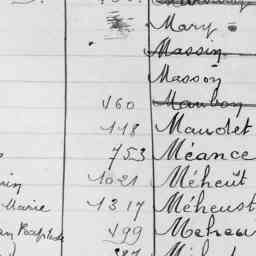 Mary
Massin
Masson
160 Maubon
118 Maudet
753 Méance
1021 Méheüt
Marie 1317 Méheust
199